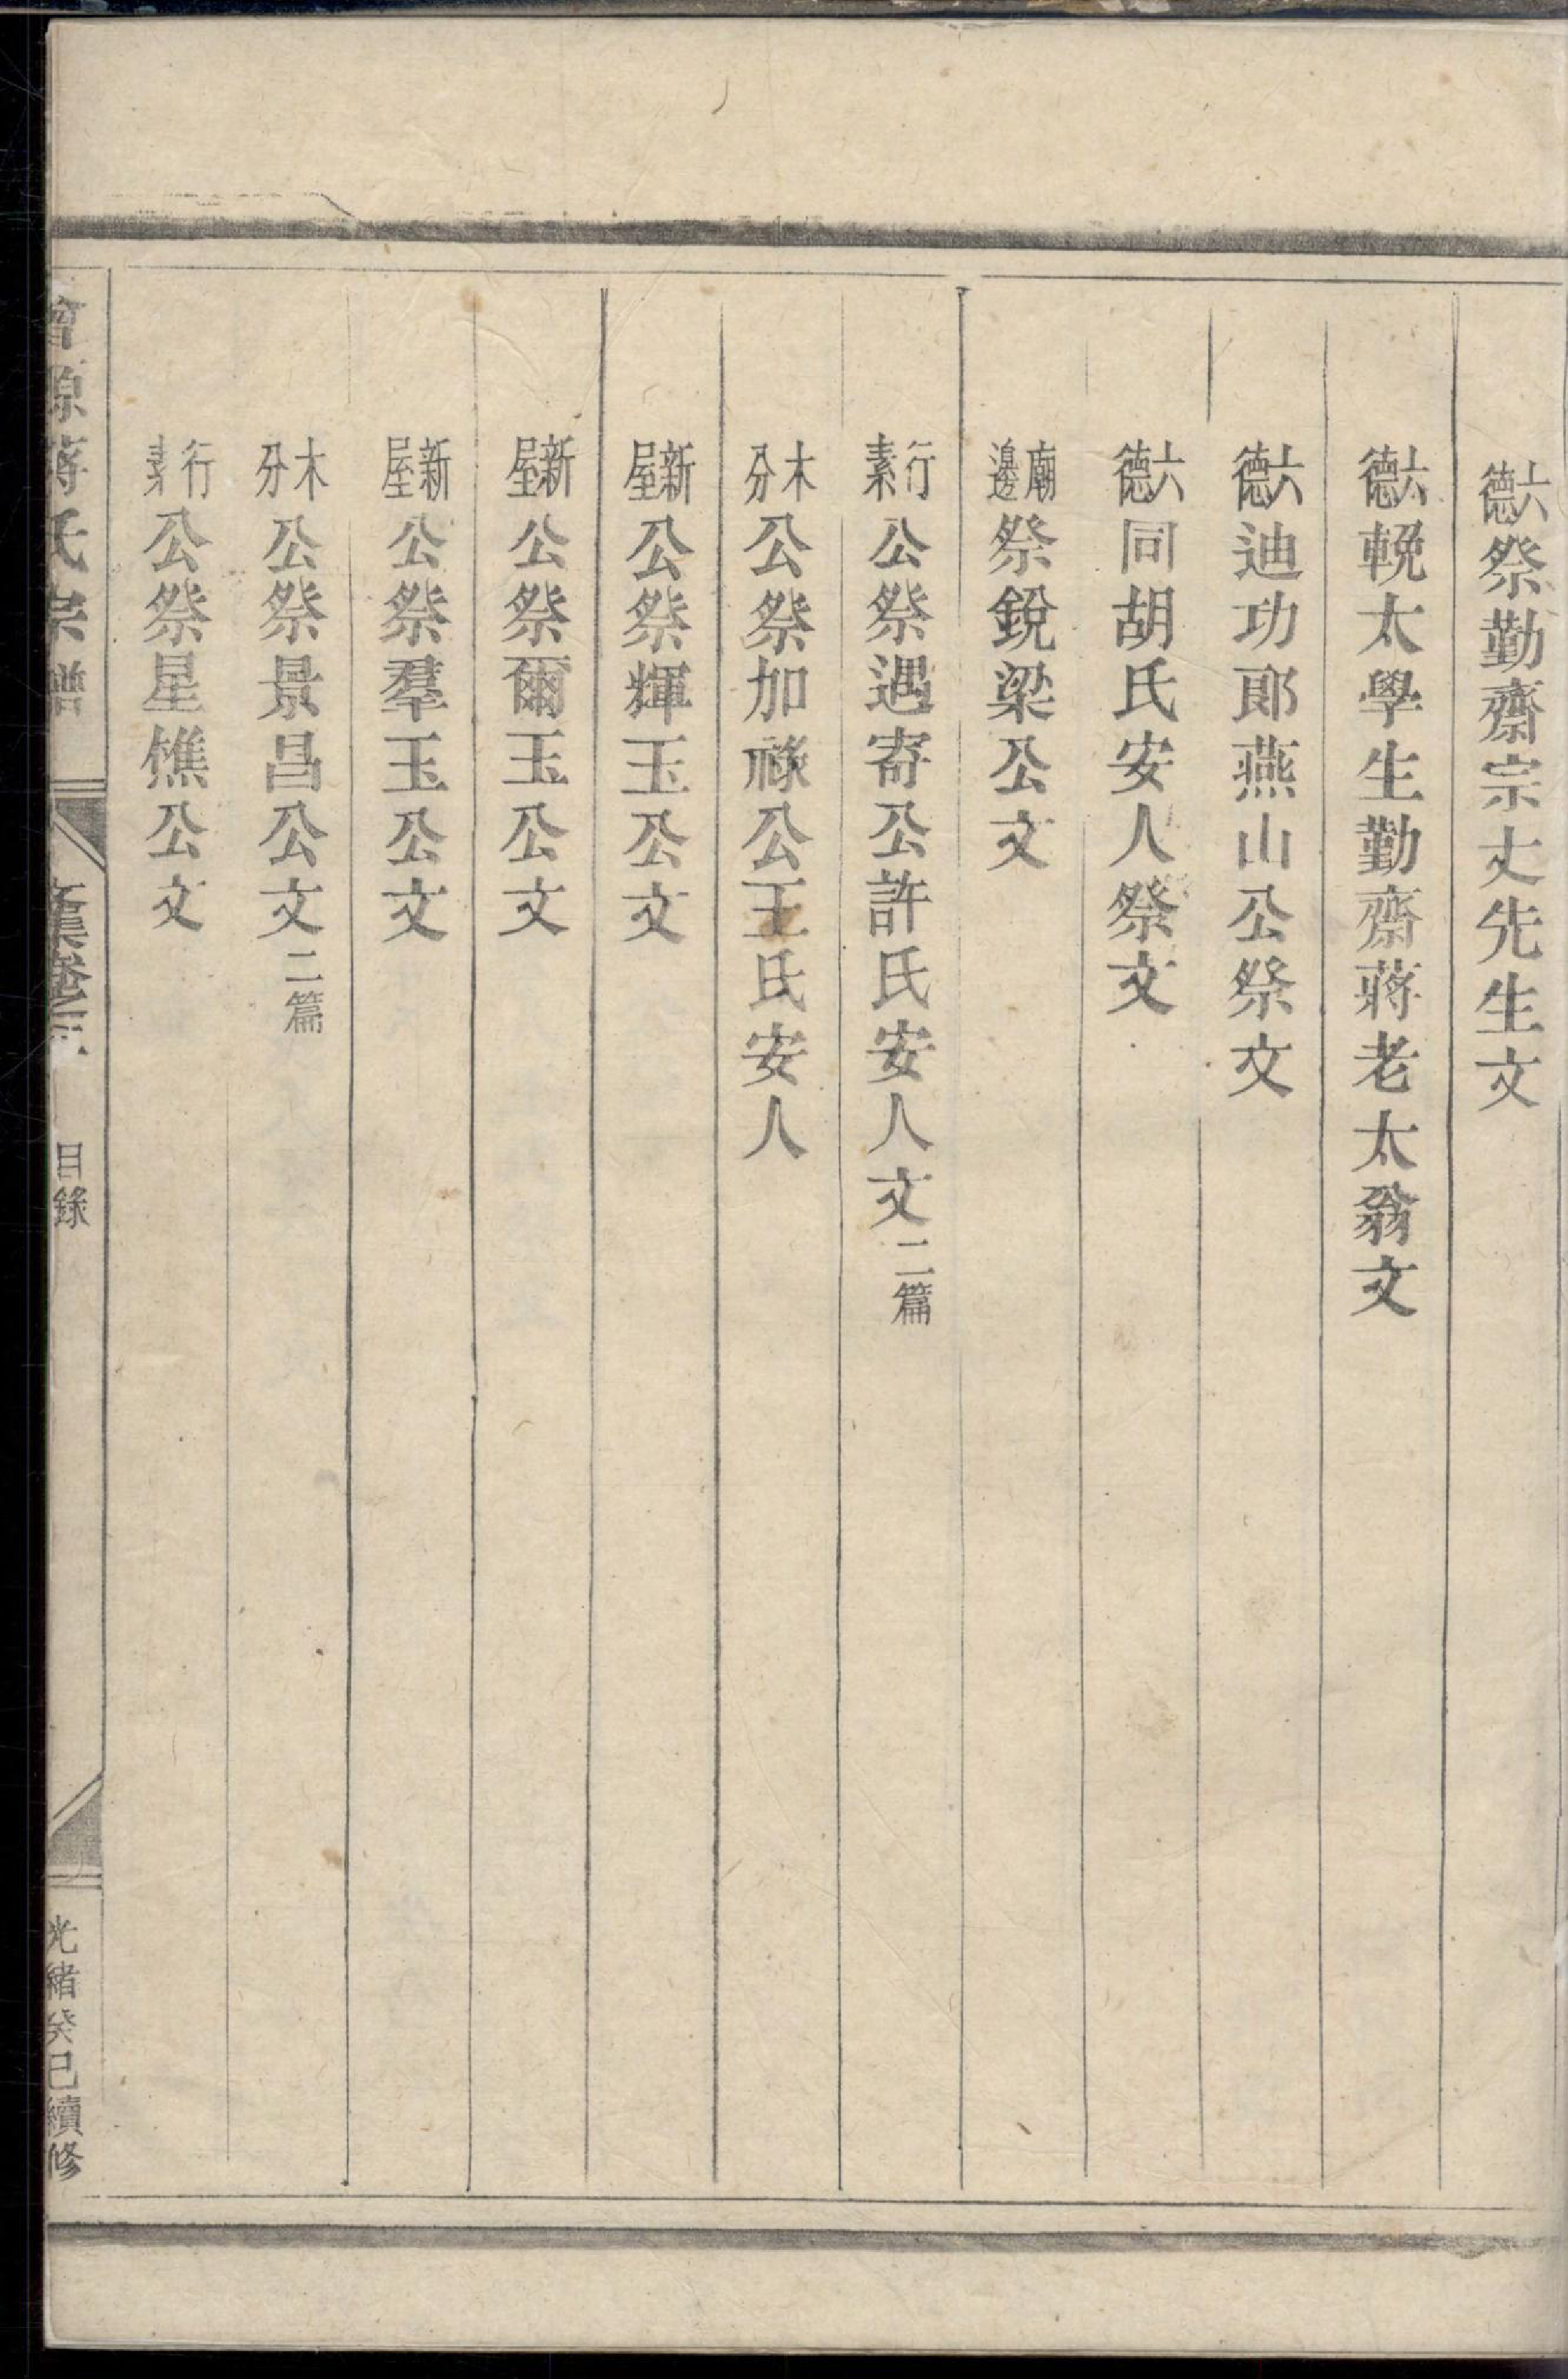 六德祭勤齋宗丈先生文
六德輓太學生勤齋蔣老太翁文
六德迪功郎燕山公祭文
六德同胡氏安人祭文
廟邊祭銳梁公文
行素公祭遇寄公許氏安人文二篇
木分公祭加祿公王氏安人
新屋公祭輝玉公文
新屋公祭爾玉公文
新屋公祭羣玉公文
木分公祭景昌公文二篇
行素公祭星樵公文
源蔣氏宗譜 文集卷 目錄 光緒癸巳續修